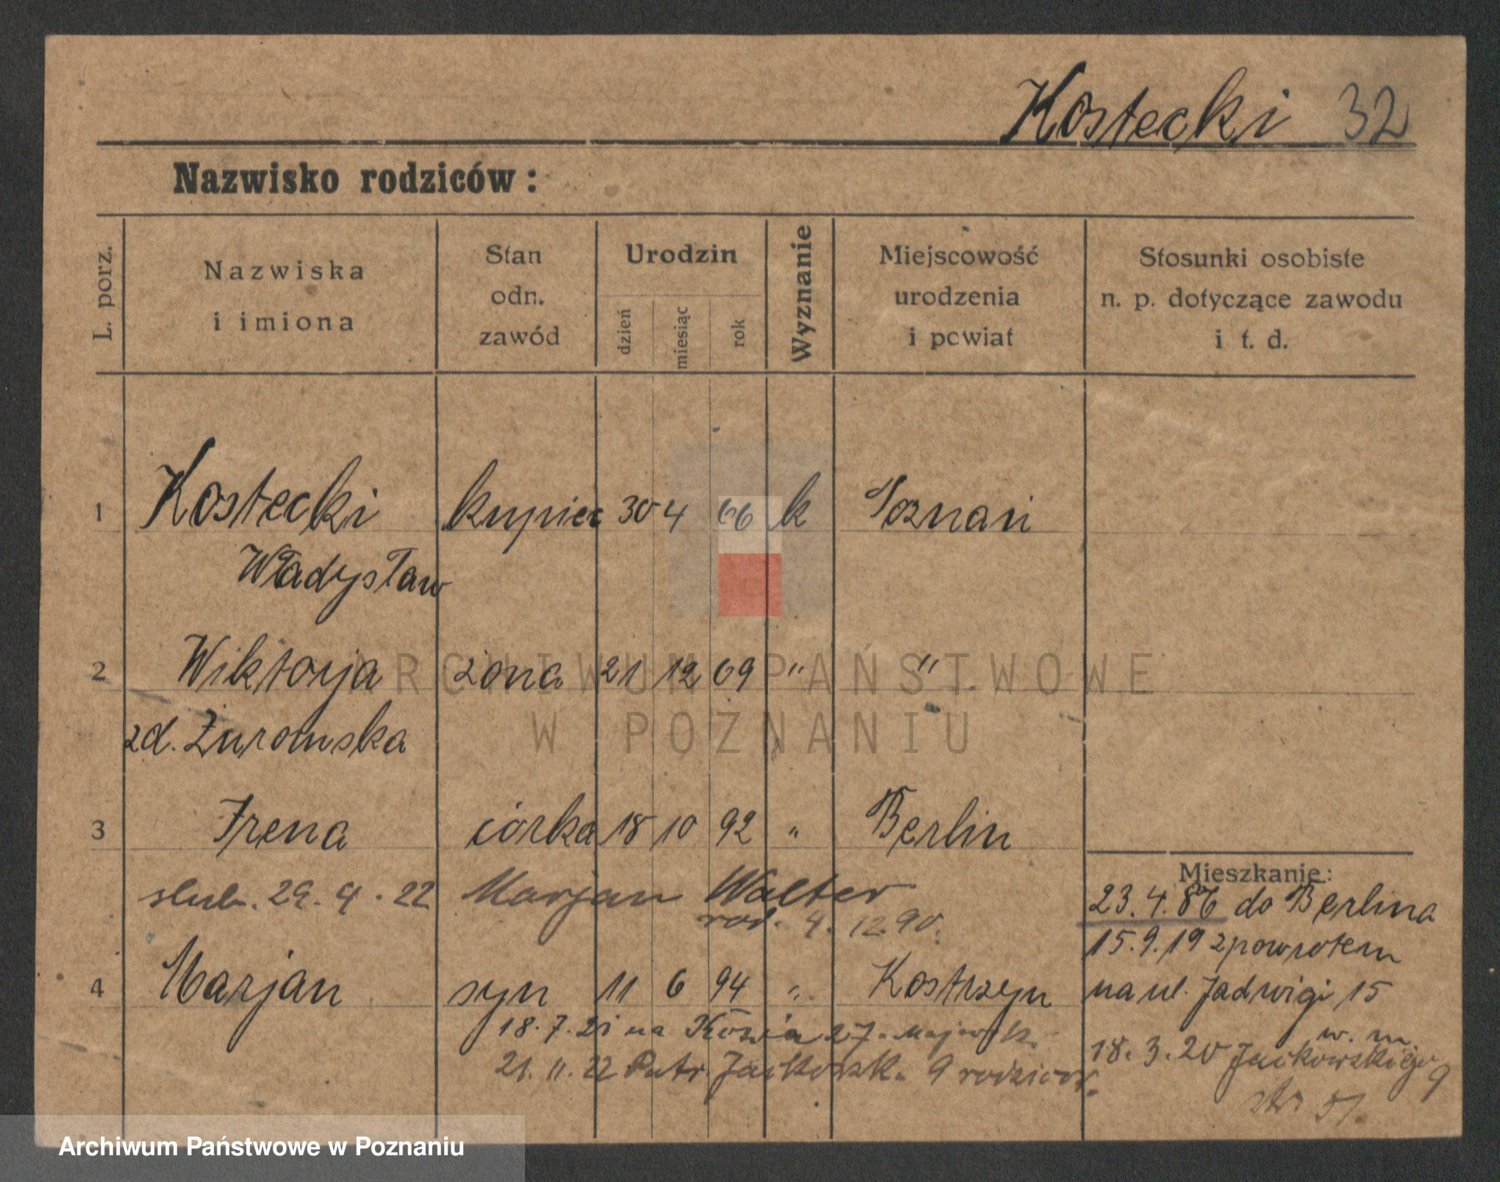 Kostecki 32
Nazwisko rodziców:
L. porz.
Nazwiska
i imiona
Stan
odn.
zawód
Urodzin
dzień
miesiąc
rok
Wyznanie
Miejscowość
urodzenia
i powiat
Stosunki osobiste
n. p. dotyczące zawodu
i t. d.
1 Kostecki kupiec 30 4 66 k Poznań
Władysław
2 Wiktorja żona 21 12 69 " "
zd. Żuromska
3 Irena córka 18 10 92 " Berlin
ślub. 29. 4. 22 Marjan Walter
rod. 4. 12 90.
4 Marjan syn 11 6 94 " Kostrzyn
18. 7. 21 na 27.
21. 11. 22 Jackowsk. 9
Mieszkanie:
23. 4. 86 do Berlina
15. 9. 19 zpowrotem
na ul. Jadwigi 15
w. m.
18. 3. 20 Jackowskiego 9
ARCHIWUM PAŃSTWOWE
W POZNANIU
Archiwum Państwowe w Poznaniu